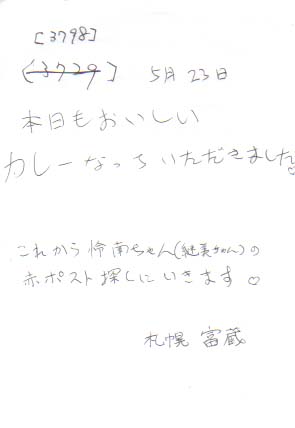 [3798]
[3729] 5月23日
本日もおいしい
カレーなっちいただきました。
これから怜南ちゃん(継美ちゃん)の
赤ポスト探しにいきます♡
札幌 富蔵